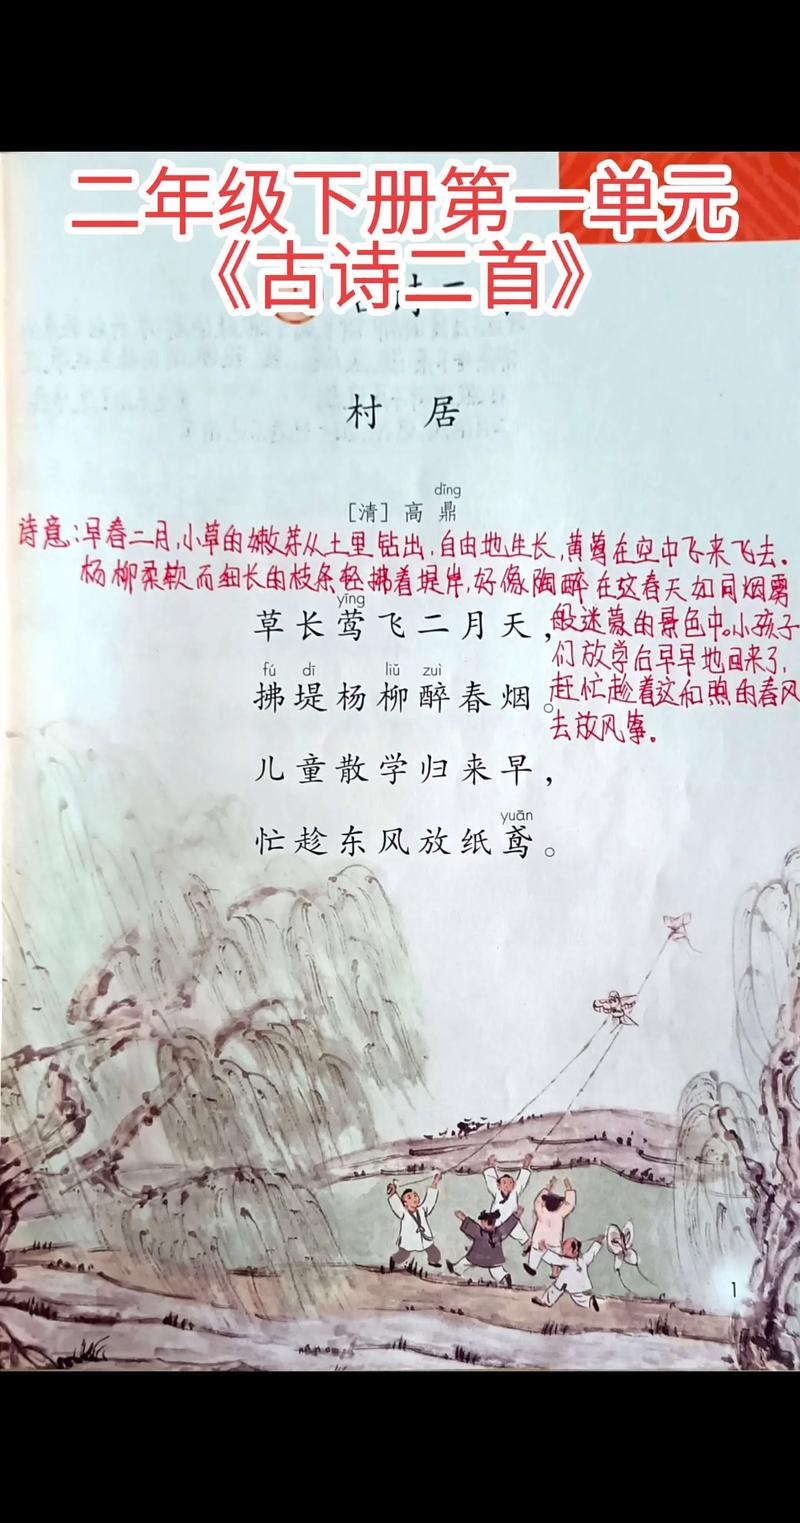 二年级下册第一单元
《古诗二首》
村居
dīng
[清]高鼎
诗意:早春二月,小草的嫩芽从土里钻出,自由地生长,黄莺在空中飞来飞去。
杨柳柔软而细长的枝条轻拂着堤岸,好像陶醉在这春天如同烟雾
般迷蒙的景色中。小孩子
们放学后早早地回来了,
赶忙趁着这和煦的春风
去放风筝。
yīng
草长莺飞二月天,
fú dī liǔ zuì
拂堤杨柳醉春烟。
儿童散学归来早,
yuān
忙趁东风放纸鸢。
1